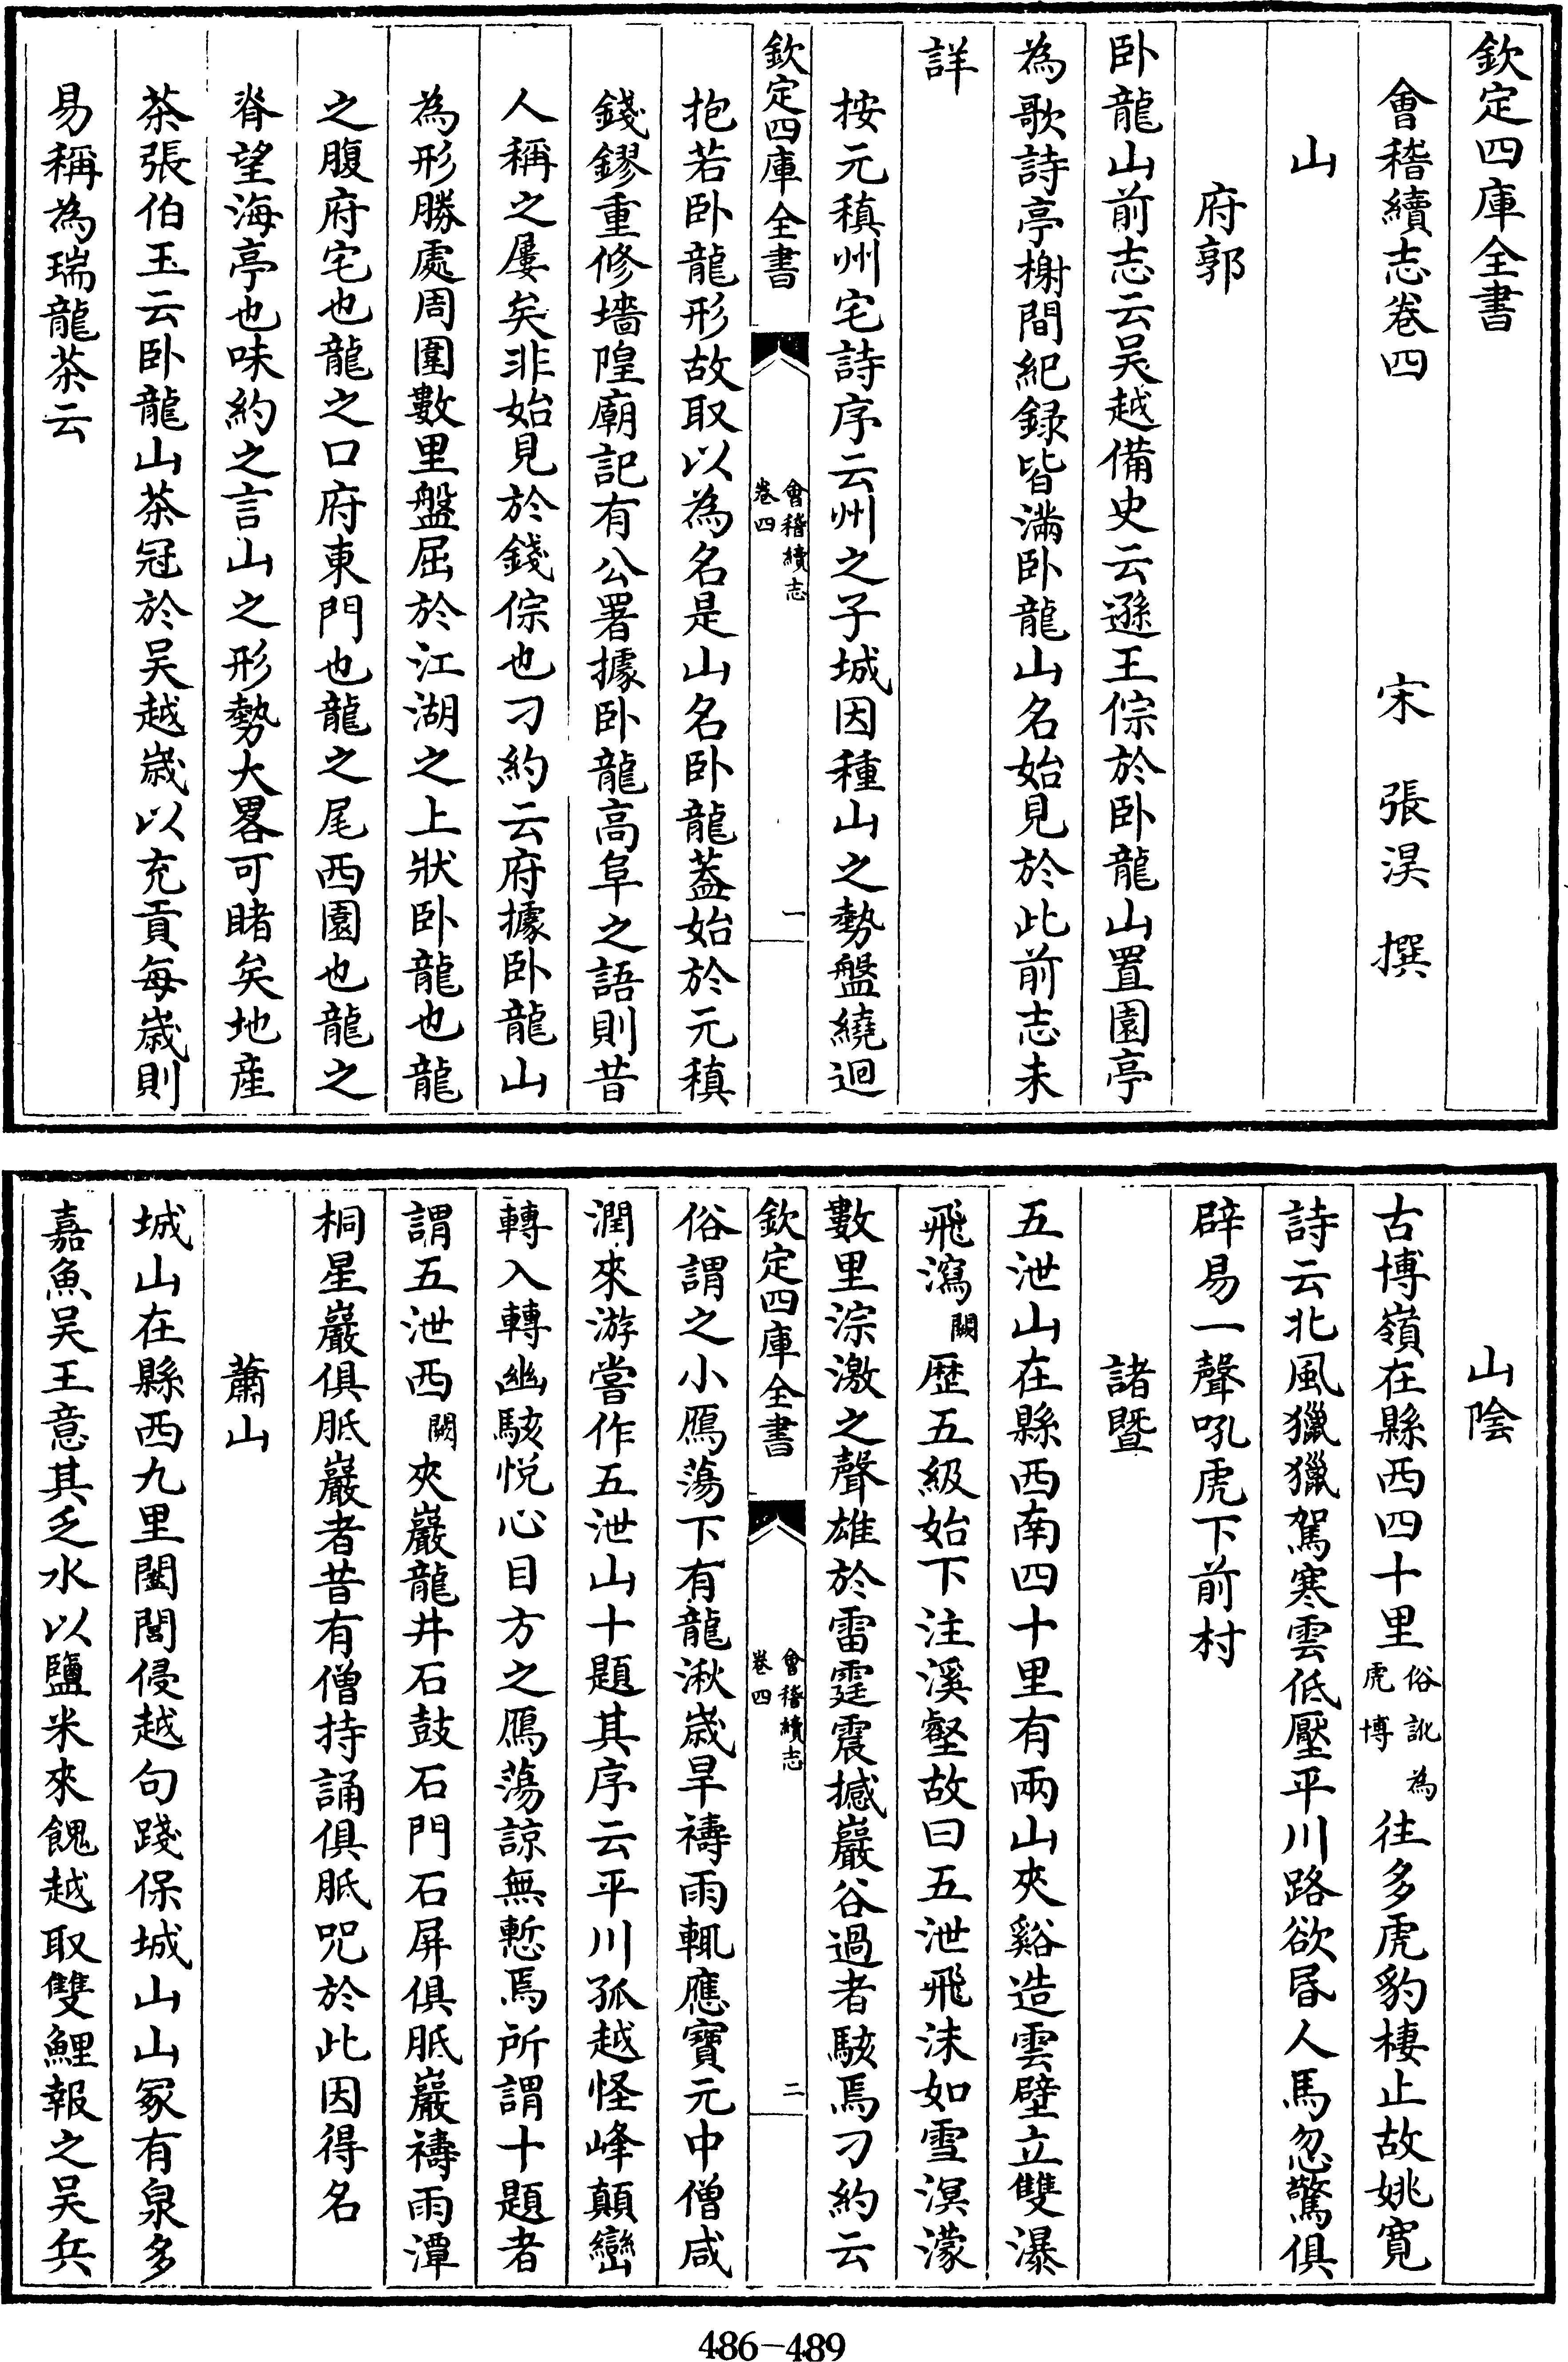 欽定四庫全書
會稽續志卷四
宋 張淏 撰
山
府郭
卧龍山前志云吴越備史云遜王倧於卧龍山置園亭
為歌詩亭榭間紀録皆滿卧龍山名始見於此前志未
詳
按元稹州宅詩序云州之子城因種山之勢盤繞迴
欽定四庫全書
會稽續志
卷四
一
抱若卧龍形故取以為名是山名卧龍葢始於元稹
錢鏐重修墻隍廟記有公署據卧龍高阜之語則昔
人稱之屢矣非始見於錢倧也刁約云府據卧龍山
為形勝處周圍數里盤屈於江湖之上狀卧龍也龍
之腹府宅也龍之口府東門也龍之尾西園也龍之
脊望海亭也味約之言山之形勢大畧可睹矣地産
茶張伯玉云卧龍山茶冠於吴越嵗以充貢每嵗則
易稱為瑞龍茶云
山隂
古博嶺在縣西四十里俗訛為虎博往多虎豹棲止故姚寛
詩云北風獵獵駕寒雲低壓平川路欲昏人馬忽驚俱
辟易一聲吼虎下前村
諸暨
五泄山在縣西南四十里有兩山夾谿造雲壁立雙瀑
飛瀉闕歴五級始下注溪壑故曰五泄飛沫如雪溟濛
數里淙激之聲雄於雷霆震撼巖谷過者駭焉刁約云
欽定四庫全書
會稽續志
卷四
二
俗謂之小鴈蕩下有龍湫嵗旱禱雨輒應寶元中僧咸
潤來游嘗作五泄山十題其序云平川孤越怪峰顛巒
轉入轉幽駭悦心目方之鴈蕩諒無慙焉所謂十題者
謂五泄西闕夾巖龍井石鼓石門石屏俱胝巖禱雨潭
桐星巖俱胝巖者昔有僧持誦俱胝咒於此因得名
蕭山
城山在縣西九里闔閭侵越句踐保城山山冢有泉多
嘉魚吴王意其乏水以鹽米來餽越取雙鯉報之吴兵
486-489